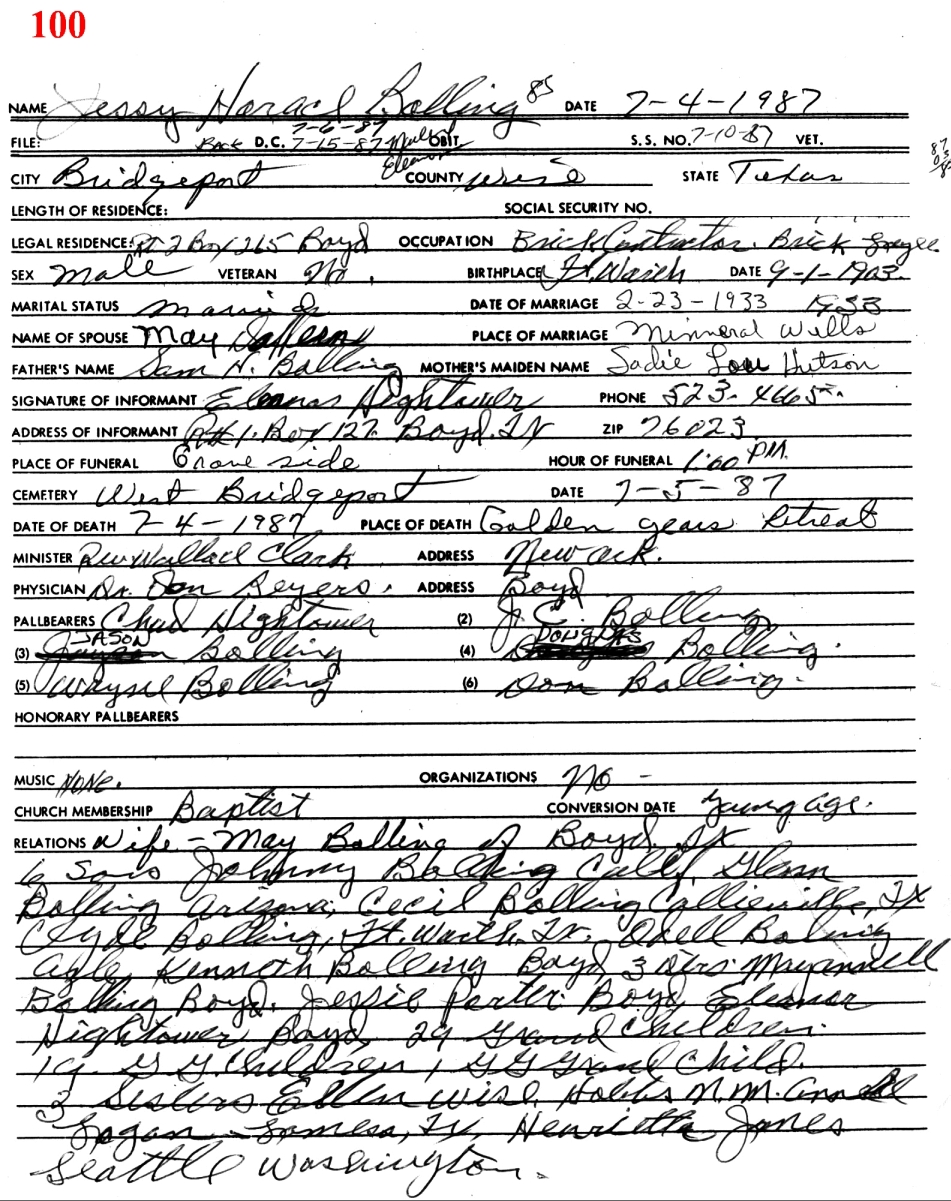 100
NAME Jessy Horace Bolling 85 DATE 7-4-1987
7-6-87
FILE: Back D.C. 7-15-87 Mailed OBIT. S.S. NO. 7-10-87 VET.
Eleanor
CITY Bridgeport COUNTY Wise STATE Texas
LENGTH OF RESIDENCE: SOCIAL SECURITY NO.
LEGAL RESIDENCE: Rt 2 Box 265 Boyd OCCUPATION Brick Contractor. Brick
SEX Male VETERAN No. BIRTHPLACE Ft. Worth DATE 9-1-1903.
MARITAL STATUS Married DATE OF MARRIAGE 2-23-1933 1933
NAME OF SPOUSE May PLACE OF MARRIAGE Minneral Wells
FATHER'S NAME Sam H. Bolling MOTHER'S MAIDEN NAME Sadie Lou Hutson
SIGNATURE OF INFORMANT Eleanor Hightower PHONE 523-4665.
ADDRESS OF INFORMANT Rt 1. Box 127. Boyd, TX ZIP 76023
PLACE OF FUNERAL Grave side HOUR OF FUNERAL 1:00 P.M.
CEMETERY West Bridgeport DATE 7-5-87
DATE OF DEATH 7-4-1987 PLACE OF DEATH Golden years Retreat
MINISTER Rev Wallace Clark ADDRESS Newark.
PHYSICIAN Dr. Don Beyers. ADDRESS Boyd
PALLBEARERS Chad Hightower (2) J.C. Bolling
JASON DOUGLAS
(3) Bolling (4) Bolling.
(5) Wayne Bolling (6) Don Bolling.
HONORARY PALLBEARERS
MUSIC NONE. ORGANIZATIONS No -
CHURCH MEMBERSHIP Baptist CONVERSION DATE Young age.
RELATIONS Wife - May Bolling of Boyd, TX
6 Sons Johnny Bolling Calif, Glenn
Bolling Arizona, Cecil Bolling Collieville, TX
Clyde Bolling, Ft. Worth, Tx. Odell Bolling
Azle, Kenneth Bolling Boyd 3 Dtrs. Mayannell
Bolling Boyd. Jessie Porter Boyd Eleanor
Hightower Boyd 29 Grand Children.
19 G G. Children 1 G G Grand Child.
3 Sisters Ellen Wise Hobbs N.M.
Logan - Lamesa, Tx, Henrietta Jones
Seattle Washington.